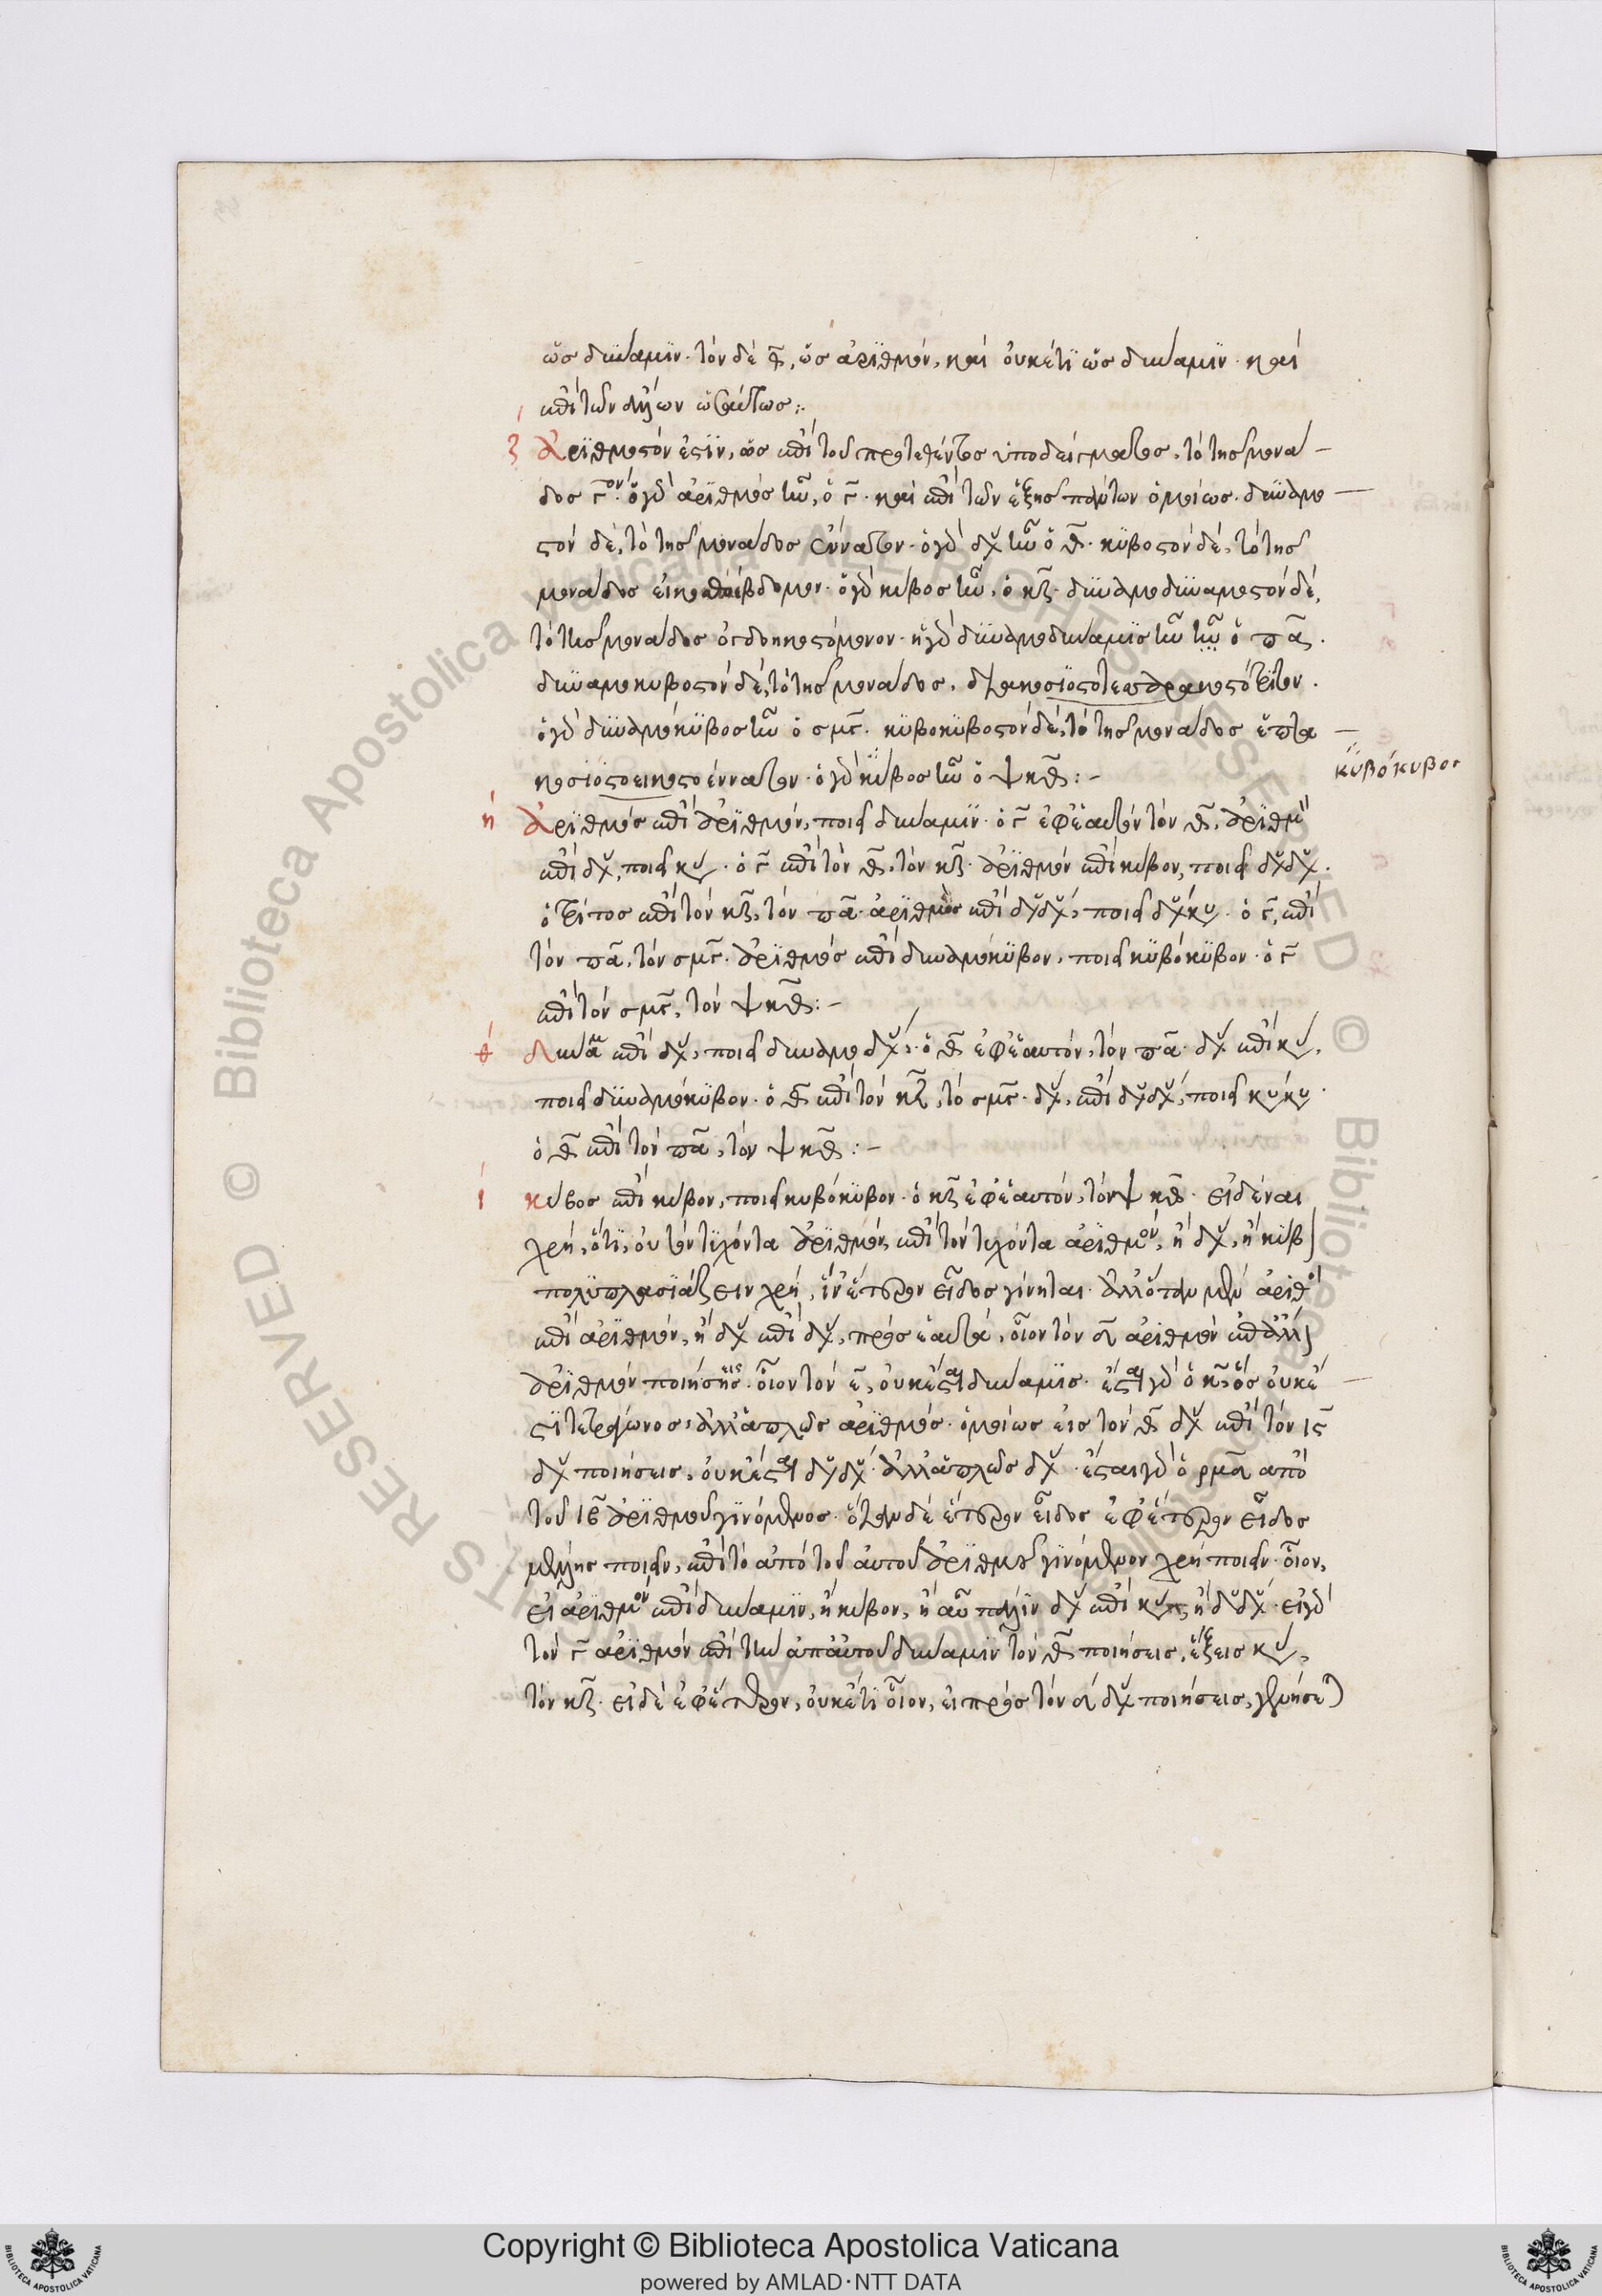 ὡς δύναμιν· τὸν δὲ θ, ὡς ἀριθμόν, καὶ οὐκέτι ὡς δύναμιν· καὶ
ἐπὶ τῶν ἄλλων ὡσαύτως:
ζ ἀριθμοστόν ἐστιν, ὡς ἐπὶ τοῦ προτεθέντος ὑποδείγματος, τὸ τῆς μονά–
δος γ^ον· ὁ γὰρ ἀριθμὸς ἦν, ὁ γ· καὶ ἐπὶ τῶν ἑξῆς πάντων ὁμοίως· δυναμο–
στὸν δὲ, τὸ τῆς μονάδος ἔννατον· ὁ γὰρ δυ ἦν ὁ θ· κυβοστὸν δέ, τὸ τῆς
μονάδος εἰκοστοέβδομον· ὁ γὰρ κύβος ἦν, ὁ κζ· δυναμοδυναμοστὸν δέ,
τὸ τῆς μονάδος ὀγδοηκοστόμονον· ἡ γὰρ δυναμοδύναμις ἦν ἦν ὁ πα·
δυναμοκυβοστὸν δέ, τὸ τῆς μονάδος, διακοσιοστοτεσσαρακοστότριτον·
ὁ γὰρ δυναμόκυβος ἦν ὁ σμγ· κυβοκυβοστὸν δέ, τὸ τῆς μονάδος ἑπτα–
κοσιοστοεικοστοένναον· ὁ γὰρ κύβος ἦν ὁ ψκθ:–
κυβόκυβος
η ἀριθμὸς ἐπὶ ἀριθμόν, ποιεῖ δύναμιν· ὁ γ ἐφ' ἑαυτὸν τὸν θ, ἀριθμὸ
ἐπὶ δυ, ποιεῖ κυ· ὁ γ ἐπὶ τὸν θ, τὸν κζ· ἀριθμὸν ἐπὶ κύβον, ποιεῖ δυδυ·
ὁ τρίτος ἐπὶ τὸν κζ, τὸν πα· ἀριθμὸς ἐπὶ δυδυ, ποιεῖ δυκυ· ὁ γ, ἐπὶ
τὸν πα, τὸν σμγ· ἀριθμὸς ἐπὶ δυναμόκυβον, ποιεῖ κυβόκυβον· ὁ γ
ἐπὶ τὸν σμγ, τὸν ψκθ:–
θ δύνα ἐπὶ δυ, ποιεῖ δυναμοδυ· ὁ θ ἐφ' ἑαυτόν, τὸν πα· δυ ἐπὶ κυ,
ποιεῖ δυναμόκυβον· ὁ θ ἐπὶ τὸν κζ, τὸ σμγ· δυ, ἐπὶ δυδυ, ποιεῖ κυκυ·
ὁ θ ἐπὶ τὸν πα, τὸν ψκθ:–
ι κύβος ἐπὶ κύβον, ποιεῖ κυβόκυβον· ὁ κζ ἐφ' ἑαυτόν, τὸν ψκθ· εἰδέναι
χρή, ὅτι, οὐ τὸν τυχόντα ἀριθμόν, ἐπὶ τὸν τυχόντα ἀριθμὸν, ἢ δυ, ἢ κύβ
πολυπλασιάζειν χρή, ἵν' ἕτερον εἶδος γίνηται· ἀλλ' ὅταν μὲν ἀριθ
ἐπὶ ἀριθμόν, ἢ δυ ἐπὶ δυ, πρὸς ἑαυτά, οἷον τὸν δ ἀριθμὸν ἐπ' ἄλλ
ἀριθμὸν ποιήσῃς· οἷον τὸν ε, οὐκ ἔσται δύναμις· ἔσται γὰρ ὁ κ, ὃς οὐκ ἔ–
στι τετράγωνος, ἀλλ' ἁπλῶς ἀριθμός· ὁμοίως εἰς τὸν θ δυ ἐπὶ τὸν ις
δυ ποιήσεις, οὐκ ἔσται δυδυ· ἀλλ' ἁπλῶς δυ· ἔσται γὰρ ὁ ρμδ ἀπὸ
τοῦ ιβ ἀριθμοῦ γινόμενος· ὅταν δὲ ἕτερον εἶδος ἐφ' ἕτερον εἶδος
μέλλῃς ποιεῖν, ἐπὶ τὸ ἀπὸ τοῦ αὐτοῦ ἀριθμοῦ γινόμενον χρὴ ποιεῖν· οἷον,
εἰ ἀριθμὸν ἐπὶ δύναμιν, ἢ κύβον, ἢ αὖ πάλιν δυ ἐπὶ κυ, ἢ δυδυ· εἰ γὰρ
τὸν γ ἀριθμὸν ἐπὶ τὴν ἀπ' αὐτοῦ δύναμιν τὸν θ ποιήσεις, ἕξεις κυ,
τὸν κζ· εἰ δὲ ἐφ' ἕτερον, οὐκέτι οἷον, εἰ πρὸς τὸν δ δυ ποιήσεις, γενήσε